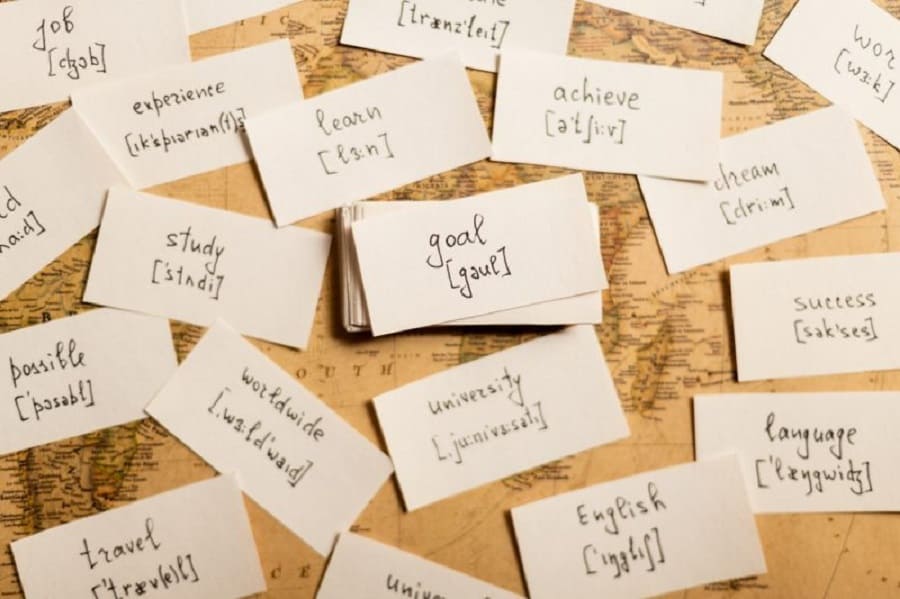 job
[dʒəb]
[trænz'leit]
wor
[wɜ:k]
experience
[ɪk'spɪərɪən(t)s]
learn
[lɜ:n]
achieve
[ə'tʃi:v]
dream
[dri:m]
study
['stʌdi]
goal
[gəul]
success
[sək'ses]
possible
['pɔsəbl]
worldwide
[ˌwɜ:ld'waɪd]
university
[ˌju:nivɜ:səti]
language
['læŋgwidʒ]
English
['ɪŋglɪʃ]
travel
['træv(ə)l]
univer
SOUTH